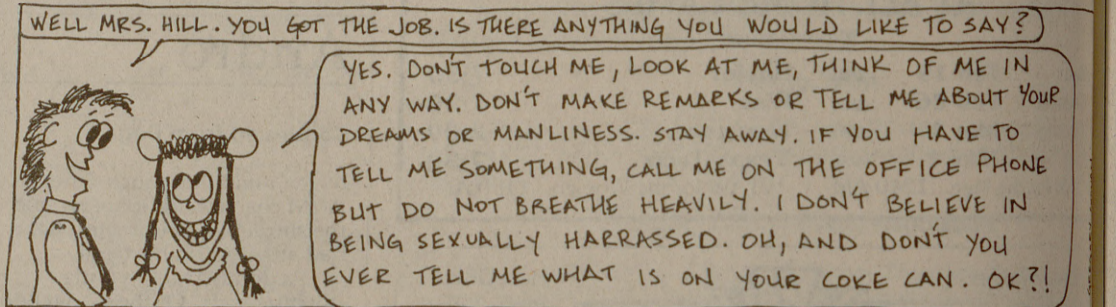 WELL MRS. HILL. YOU GOT THE JOB. IS THERE ANYTHING YOU WOULD LIKE TO SAY?
YES. DON'T TOUCH ME, LOOK AT ME, THINK OF ME IN
ANY WAY. DON'T MAKE REMARKS OR TELL ME ABOUT YOUR
DREAMS OR MANLINESS. STAY AWAY. IF YOU HAVE TO
TELL ME SOMETHING, CALL ME ON THE OFFICE PHONE
BUT DO NOT BREATHE HEAVILY. I DON'T BELIEVE IN
BEING SEXUALLY HARRASSED. OH, AND DON'T YOU
EVER TELL ME WHAT IS ON YOUR COKE CAN. OK?!